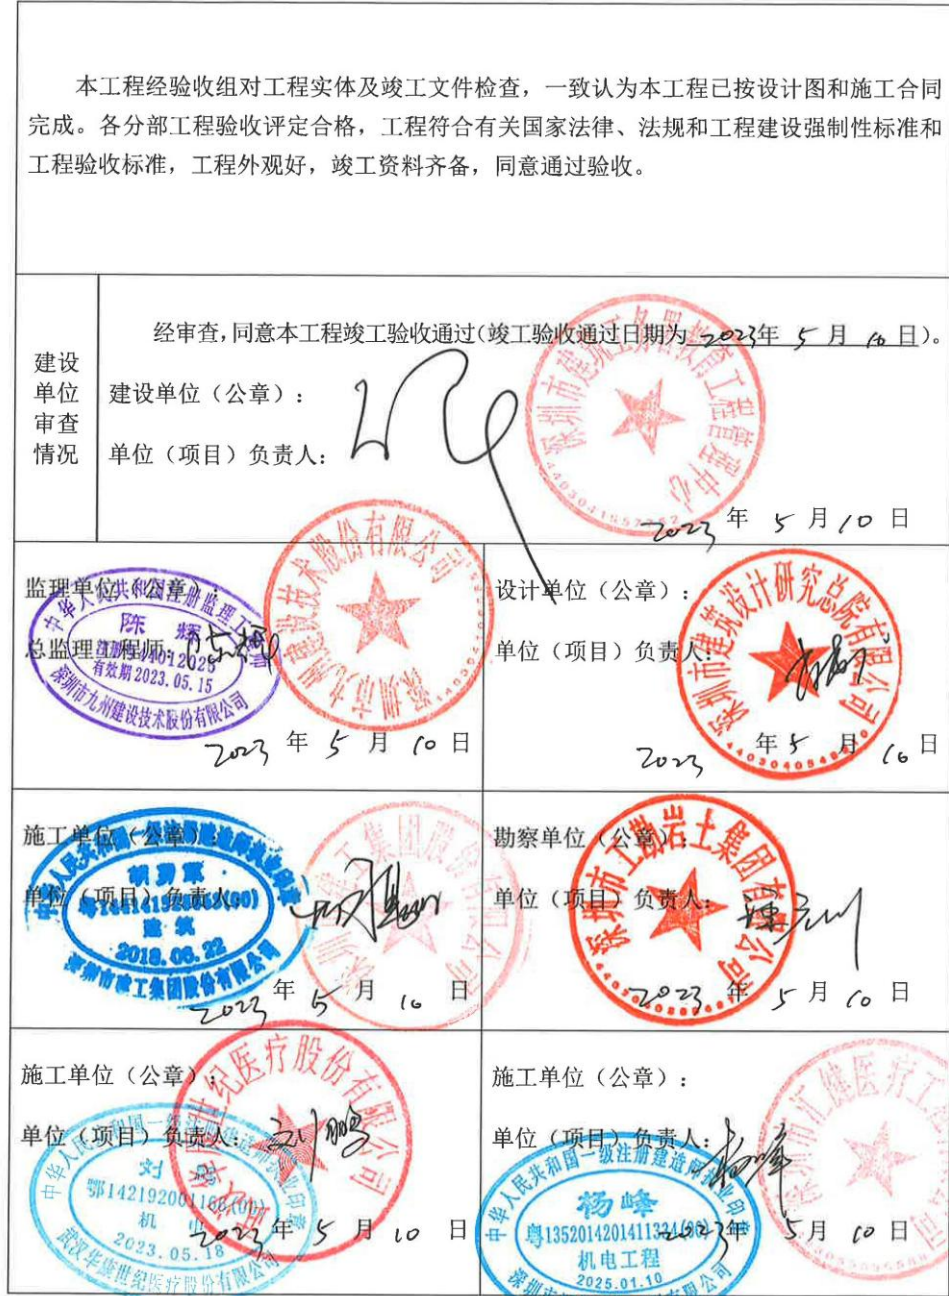 本工程经验收组对工程实体及竣工文件检查，一致认为本工程已按设计图和施工合同
完成。各分部工程验收评定合格，工程符合有关国家法律、法规和工程建设强制性标准和
工程验收标准，工程外观好，竣工资料齐备，同意通过验收。
建设
单位
审查
情况
经审查，同意本工程竣工验收通过（竣工验收通过日期为 2023年 5 月 10 日）。
建设单位（公章）：
单位（项目）负责人：
深圳市建筑工务署教育工程管理中心
2023 年 5 月 10 日
监理单位（公章）：
总监理工程师：陈辉
中华人民共和国注册监理工程师
陈 辉
有效期 2023.05.15
深圳市九州建设技术股份有限公司
深圳市九州建设技术股份有限公司
2023 年 5 月 10 日
设计单位（公章）：
单位（项目）负责人：
深圳市建筑设计研究总院有限公司
2023 年 5 月 10 日
施工单位（公章）：
单位（项目）负责人：
中华人民共和国一级注册建造师执业印章
建 筑
2018.06.22
深圳市建工集团股份有限公司
2023 年 5 月 10 日
勘察单位（公章）：
单位（项目）负责人：
深圳市工勘岩土集团有限公司
2023 年 5 月 10 日
施工单位（公章）：
单位（项目）负责人：刘鹏
武汉华康世纪医疗股份有限公司
中华人民共和国一级注册建造师执业印章
刘 鹏
机 电
2023.05.18
武汉华康世纪医疗股份有限公司
2023 年 5 月 10 日
施工单位（公章）：
单位（项目）负责人：杨峰
中华人民共和国一级注册建造师执业印章
杨峰
机电工程
2025.01.10
2023年 5月 10 日